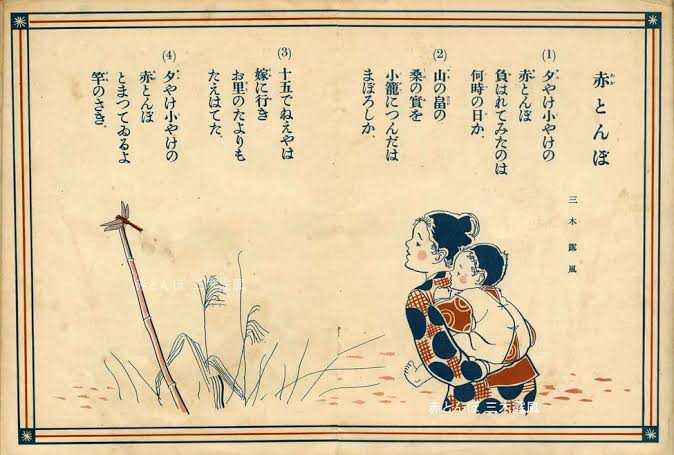 赤とんぼ
三木露風
(1)
夕やけ小やけの
赤とんぼ
負はれてみたのは
何時の日か。
(2)
山の畠の
桑の實を
小籠につんだは
まぼろしか。
(3)
十五でねえやは
嫁に行き
お里のたよりも
たえはてた。
(4)
夕やけ小やけの
赤とんぼ
とまつてゐるよ
竿のさき。
赤とんぼ 三木露風
赤とんぼ 三木露風